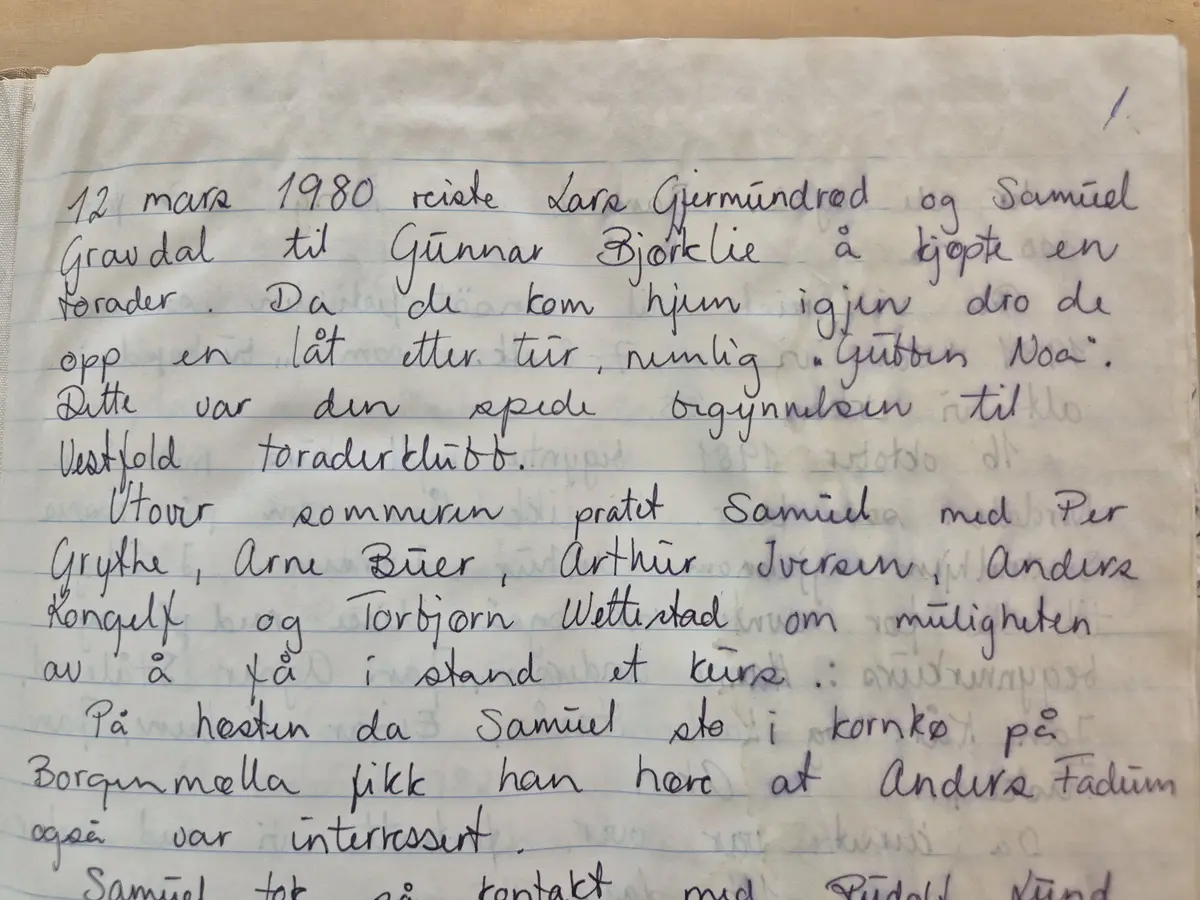 1.
12 mars 1980 reiste Lars Gjermundrød og Samuel
Gravdal til Gunnar Bjørklie å kjøpte en
torader. Da de kom hjem igjen dro de
opp en låt etter tur, nemlig "Gubben Noa".
Dette var den spede begynnelsen til
Vestfold toraderklubb.
Utover sommeren pratet Samuel med Per
Grythe, Arne Buer, Arthur Iversen, Anders
Kongelf og Torbjørn Wettestad om muligheten
av å få i stand et kurs .:
På høsten da Samuel sto i kornkø på
Borgenmølla fikk han høre at Anders Fadum
også var interressert.
Samuel tok så kontakt med Rudolf Lund